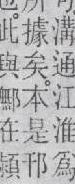 溝通江淮為
所據矣。本是邗
也。此與鄦在